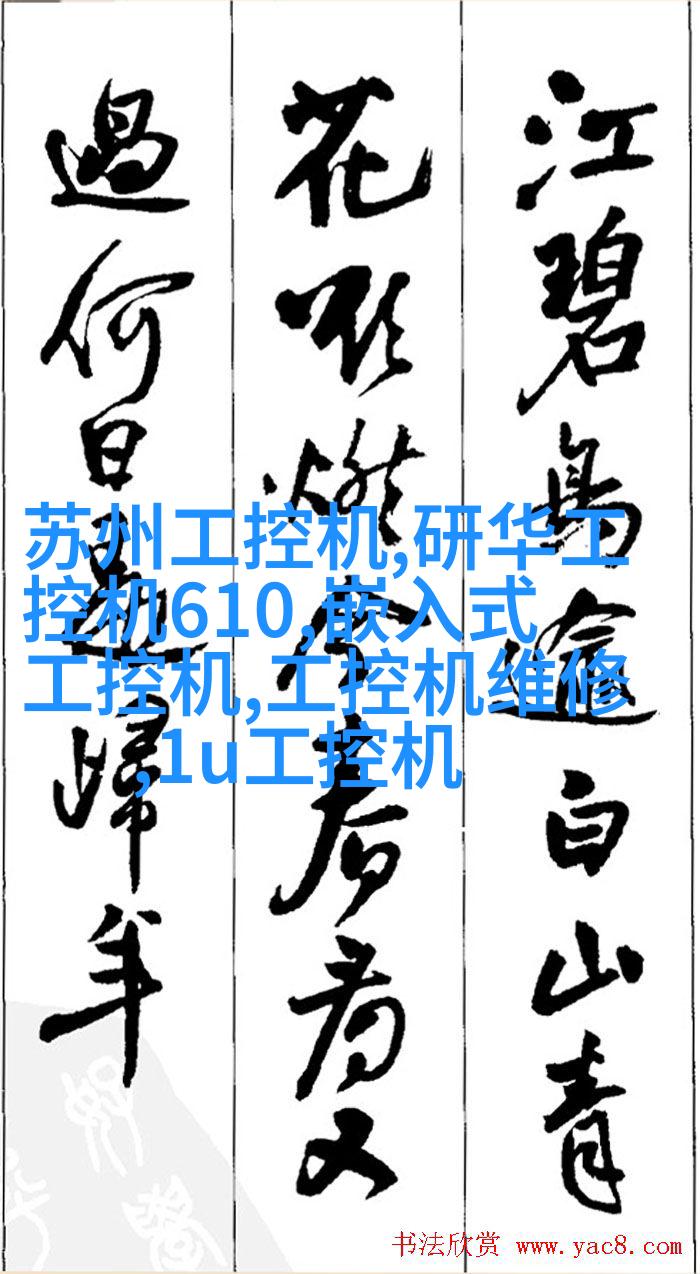 江碧鳥逾白山青
花欲燃今春看又
過何日是歸年
苏州工控机,研华工
控机610,嵌入式
工控机,工控机维修
,1u工控机
书法欣赏 www.yac8.com